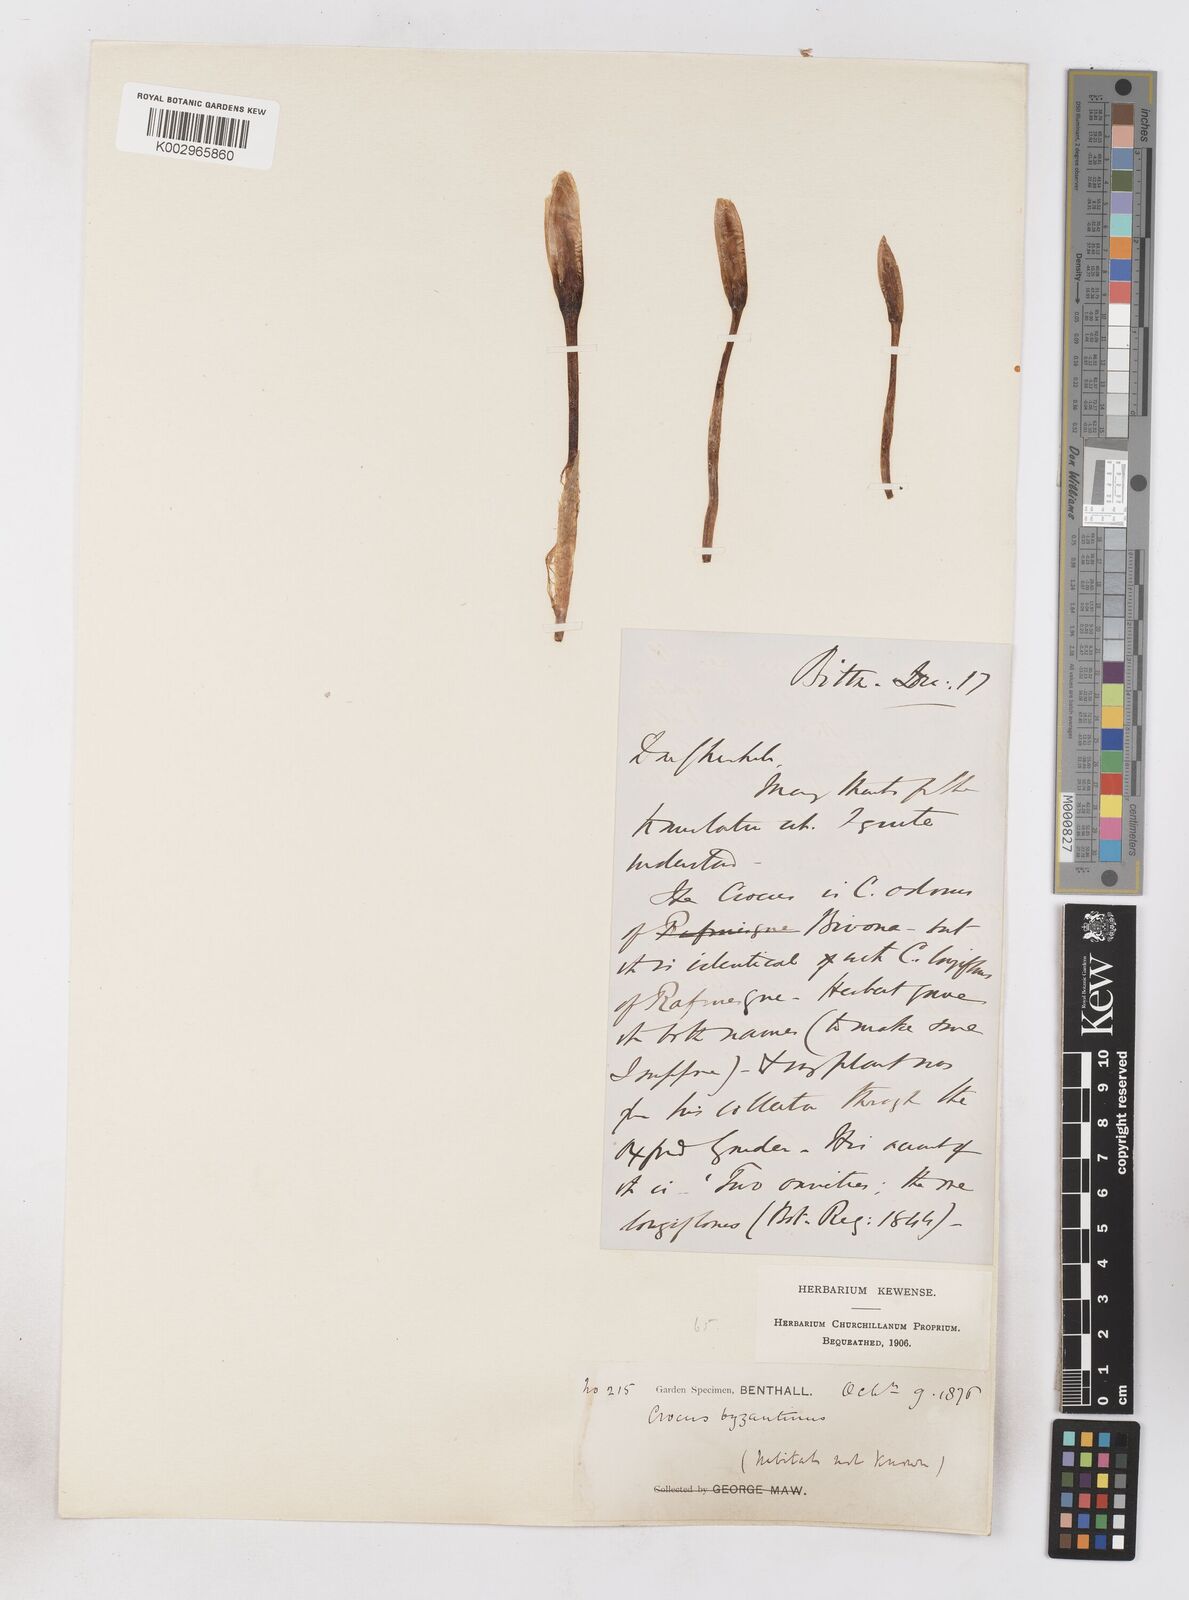 ROYAL BOTANIC GARDENS KEW
K002965860
Bitton - Dec: 17
Dear Churchill,
Many thanks for the
translation wh. I quite
understand -
The Crocus is C. odorus
of Rafinesque Bivona - but
it is identical with C. longiflorus
of Rafinesque - Herbert gave
it both names (to make sure
I suppose) - & my plant was
his collection through the
Oxford Garden - His account of
it is - 'Two varieties; the one
longiflorus (Bot. Reg: 1844) -
HERBARIUM KEWENSE.
HERBARIUM CHURCHILLANUM PROPRIUM.
BEQUEATHED, 1906.
65
No 215 Garden Specimen, BENTHALL. Octbr 9. 1876
Crocus byzantinus
(habitat not known)
Collected by GEORGE MAW.
inches
centimetres
Density
Don Williams
M000827
Royal Botanic Gardens
Kew
copyright reserved
0 1 2 3 4 5 6 7 8 9 10
cm